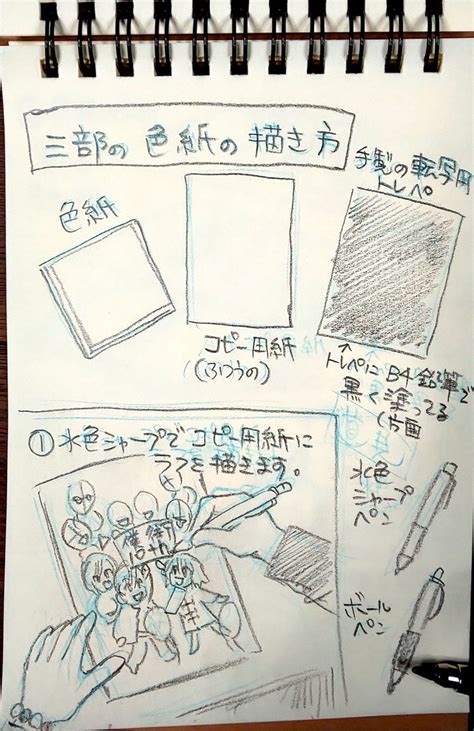 三部の色紙の描き方
色紙
コピー用紙
(ふつうの)
手製の転写用
トレペ
トレペに B4鉛筆で
黒く塗ってる
(片面
①水色シャープでコピー用紙に
ラフを描きます。
水色
シャープ
ペン
ボール
ペン